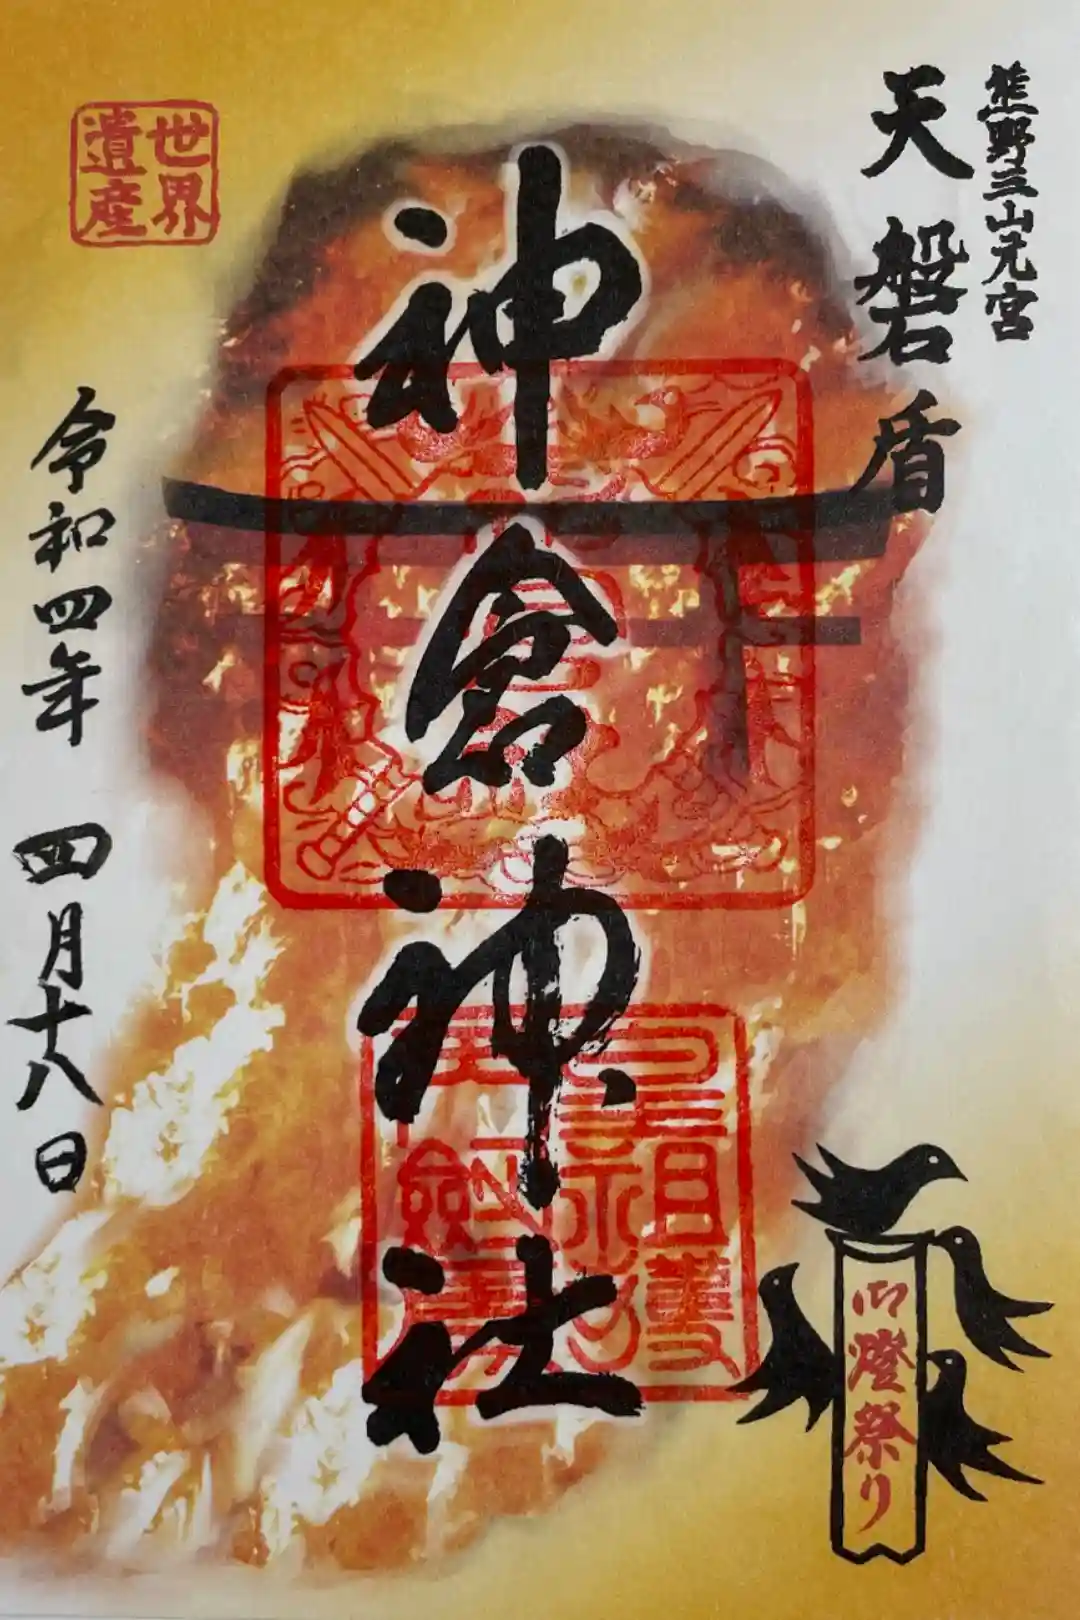 熊野三山元宮
天磐盾
神倉神社
世界
遺産
令和四年 四月十八日
御燈祭り